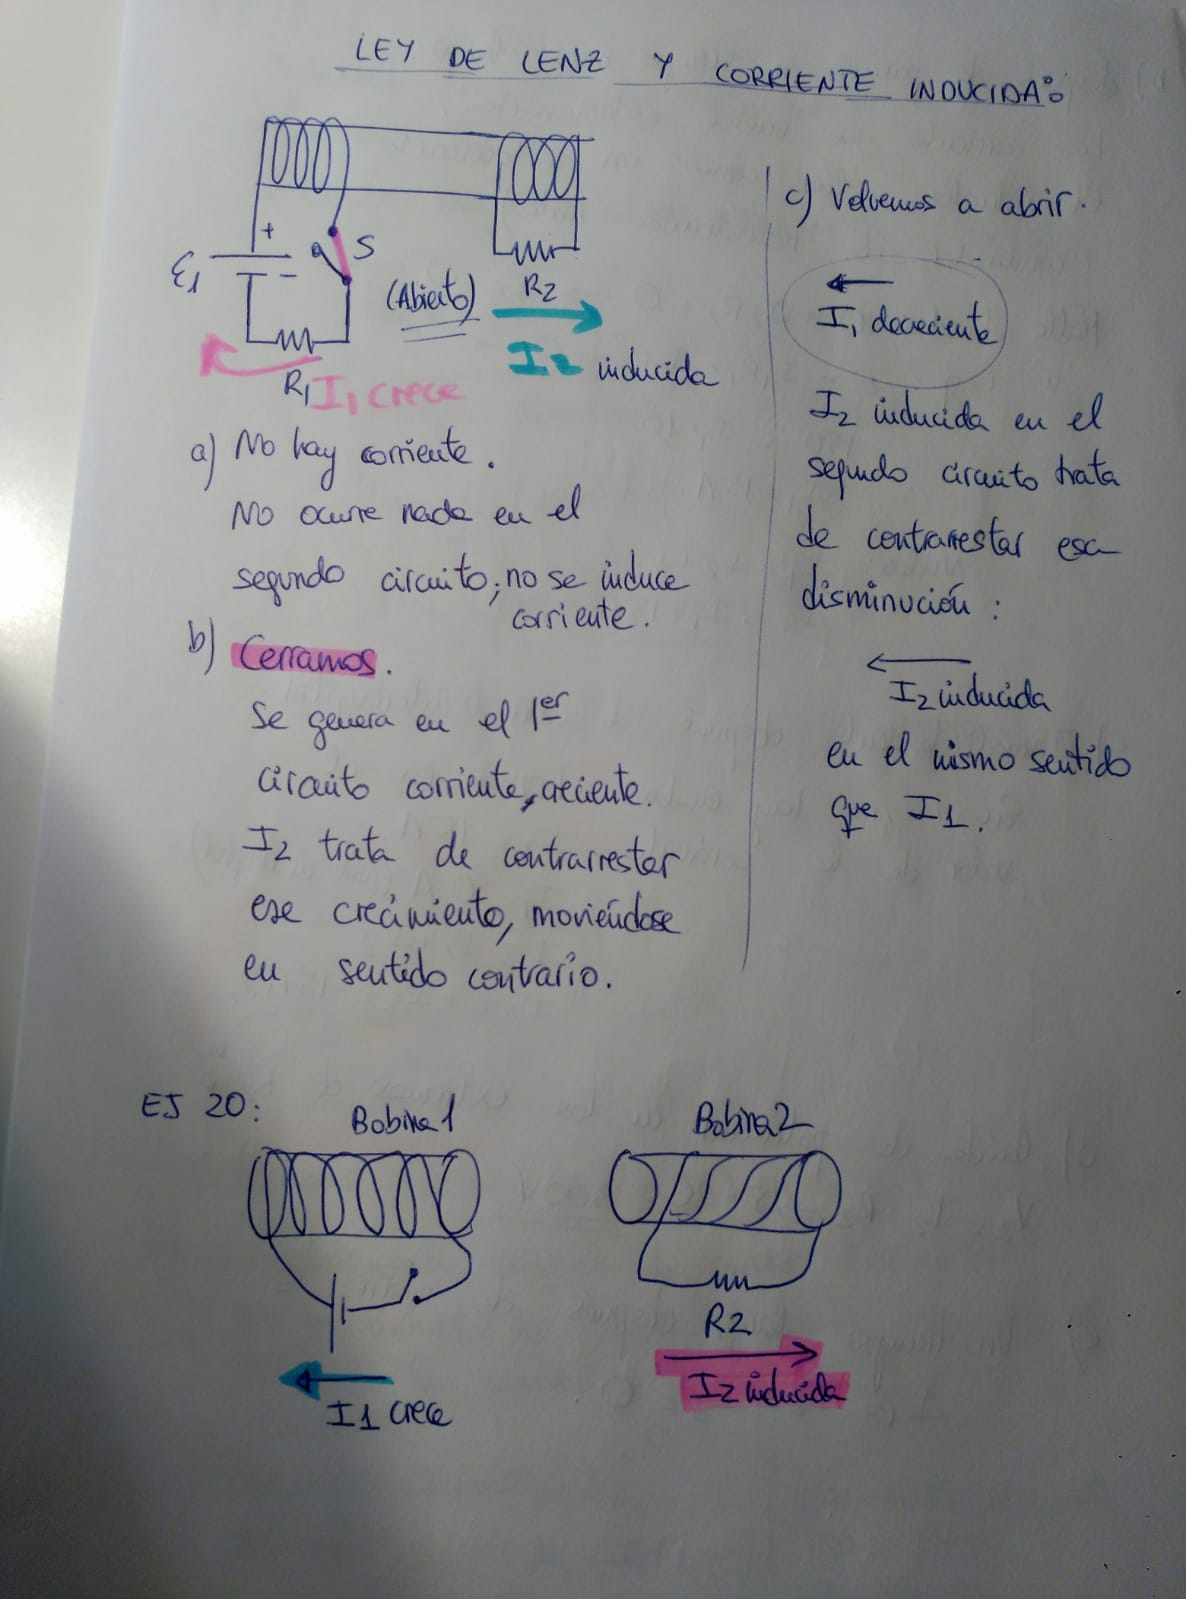 LEY DE LENZ Y CORRIENTE INDUCIDA:
+
S
ε1
-
(Abierto)
R2
I2 inducida
R1
I1 crece
a) No hay corriente.
No ocurre nada en el
segundo circuito; no se induce
corriente.
b) Cerramos.
Se genera en el 1er
circuito corriente, creciente.
I2 trata de contrarrestar
ese crecimiento, moviéndose
en sentido contrario.
c) Volvemos a abrir.
I1 decreciente
I2 inducida en el
segundo circuito trata
de contrarrestar esa
disminución:
I2 inducida
en el mismo sentido
que I1.
EJ 20:
Bobina 1
Bobina 2
R2
I1 crece
I2 inducida